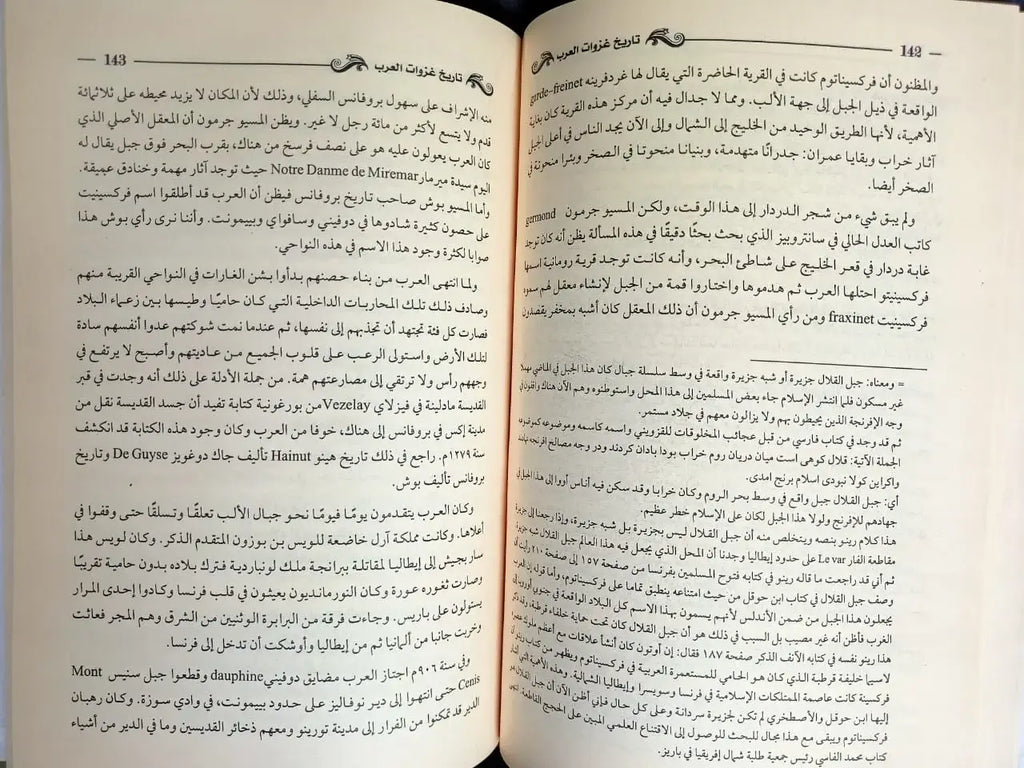 142
تاريخ غزوات العرب
والمظنون أن فركسيناتوم كانت في القرية الحاضرة التي يقال لها غردفرينه garde-freinet
الواقعة في ذيل الجبل إلى جهة الألب. ومما لا جدال فيه أن مركز هذه القرية كان بغاية
الأهمية، لأنها الطريق الوحيد من الخليج إلى الشمال وإلى الآن يجد الناس في أعلى الجبل
آثار خراب وبقايا عمران: جدرانًا متهدمة، وبنيانا منحوتا في الصخر وبئرا منحوتة في
الصخر أيضا.
ولم يبق شيء من شجر الدردار إلى هذا الوقت، ولكن المسيو جرمون germond
كاتب العدل الحالي في سانتروبيز الذي بحث بحثًا دقيقًا في هذه المسألة يظن أنه كان توجد
غابة دردار في قعر الخليج على شاطئ البحر، وأنه كانت توجد قرية رومانية اسمها
فركسينيتو احتلها العرب ثم هدموها واختاروا قمة من الجبل لإنشاء معقل لهم سموه
فركسينيت fraxinet ومن رأي المسيو جرمون أن ذلك المعقل كان أشبه بمخفر يقصدون
= ومعناه: جبل القلال جزيرة أو شبه جزيرة واقعة في وسط سلسلة جبال كان هذا الجبل في الماضي مهملا
غير مسكون فلما انتشر الإسلام جاء بعض المسلمين إلى هذا المحل واستوطنوه وهم الآن هناك واقفون في
وجه الإفرنجة الذين يحيطون بهم ولا يزالون معهم في جلاد مستمر.
ثم قد وجد في كتاب فارسي من قبل عجائب المخلوقات للقزويني واسمه كاسمه وموضوعه كموضوعه
الجملة الآتية: قلال كوهى است ميان دريان روم خراب بودا بادان كردند ودر وجه مصالح افرنجه نهادند
واكراين كولا نبودى اسلام برنج امدى.
أي: جبل القلال جبل واقع في وسط بحر الروم وكان خرابا وقد سكن فيه أناس أووا إلى هذا الجبل في
جهادهم للإفرنج ولولا هذا الجبل لكان على الإسلام خطر عظيم.
هذا كلام رينو بنصه ويتخلص منه أن جبل القلال ليس بجزيرة بل شبه جزيرة، وإذا رجعنا إلى جزيرة
مقاطعة الفار Levar على حدود إيطاليا وجدنا أن المحل الذي يجعل فيه هذا العالم جبل القلال شبه جزيرة
ثم أني قد راجعت ما قاله رينو في كتابه فتوح المسلمين بفرنسا من صفحة ١٥٧ إلى صفحة ٢١٠ رأيت أن
وصف جبل القلال في كتاب ابن حوقل من حيث امتناعه ينطبق تماما على فركسيناتوم، وأما قوله إن العرب
يجعلون هذا الجبل من ضمن الأندلس لأنهم يسمون بهذا الاسم كل البلاد الواقعة في جنوبي أوروبة إلى
الغرب فأظن أنه غير مصيب بل السبب في ذلك هو أن جبل القلال كان تحت حماية خلفاء قرطبة، وقد ذكر
هذا رينو نفسه في كتابه الآنف الذكر صفحة ١٨٧ فقال: إن أوتون كان أنشأ علاقات مع أعظم ملوك عصره
لاسيما خليفة قرطبة الذي كان هو الحامي للمستعمرة العربية في فركسيناتوم ويظهر من كتاب رينو أن
فركسينة كانت عاصمة الممتلكات الإسلامية في فرنسا وسويسرا وإيطاليا الشمالية. وهذه الأهمية التي أشار
إليها ابن حوقل والأصطخري لم تكن لجزيرة سردانة وعلى كل حال فإني أظن الآن أن جبل القلال هو
فركسيناتوم ويبقى مع هذا مجال للبحث للوصول إلى الاقتناع العلمي المبين على الحجج القاطعة.
كتاب محمد الفاسي رئيس جمعية طلبة شمال إفريقيا في باريز.
143
تاريخ غزوات العرب
منه الإشراف على سهول بروفانس السفلي، وذلك لأن المكان لا يزيد محيطه على ثلاثمائة
قدم ولا يتسع لأكثر من مائة رجل لا غير. ويظن المسيو جرمون أن المعقل الأصلي الذي
كان العرب يعولون عليه هو على نصف فرسخ من هناك، بقرب البحر فوق جبل يقال له
اليوم سيدة ميرمار Notre Danme de Miremar حيث توجد آثار مهمة وخنادق عميقة.
وأما المسيو بوش صاحب تاريخ بروفانس فيظن أن العرب قد أطلقوا اسم فركسينيت
على حصون كثيرة شادوها في دوفيني وسافواي وبييمونت. وأننا نرى رأي بوش هذا
صوابا لكثرة وجود هذا الاسم في هذه النواحي.
ولما انتهى العرب من بناء حصنهم بدأوا بشن الغارات في النواحي القريبة منهم
وصادف ذلك تلك المحاربات الداخلية التي كان حاميًا وطيسها بين زعماء البلاد
فصارت كل فئة تجتهد أن تجذبهم إلى نفسها، ثم عندما نمت شوكتهم عدوا أنفسهم سادة
لتلك الأرض واستولى الرعب على قلوب الجميع من عاديتهم وأصبح لا يرتفع في
وجههم رأس ولا ترتقي إلى مصارعتهم همة. من جملة الأدلة على ذلك أنه وجدت في قبر
القديسة مادلينة في فيزلاي Vezelay من بورغونية كتابة تفيد أن جسد القديسة نقل من
مدينة إكس في بروفانس إلى هناك، خوفا من العرب وكان وجود هذه الكتابة قد انكشف
سنة ١٢٧٩م. راجع في ذلك تاريخ هينو Hainut تأليف جاك دوغويز De Guyse وتاريخ
بروفانس تأليف بوش.
وكان العرب يتقدمون يومًا فيومًا نحو جبال الألب تعلقًا وتسلقًا حتى وقفوا في
أعلاها. وكانت مملكة آرل خاضعة للويس بن بوزون المتقدم الذكر. وكان لويس هذا
سار بجيش إلى إيطاليا لمقاتلة بيرانجة ملك لونباردية فترك بلاده بدون حامية تقريبًا
وصارت ثغوره عورة وكان النورمانديون يعيشون في قلب فرنسا وكادوا إحدى المرار
يستولون على باريس. وجاءت فرقة من البرابرة الوثنيين من الشرق وهم المجر فعاثت
وخربت جانبا من ألمانيا ثم من إيطاليا وأوشكت أن تدخل إلى فرنسا.
وفي سنة ٩٠٦م اجتاز العرب مضايق دوفيني dauphine وقطعوا جبل سنيس Mont
Cenis حتى انتهوا إلى دير نوفاليز على حدود بييمونت، في وادي سوزة. وكان رهبان
الدير قد تمكنوا من الفرار إلى مدينة تورينو ومعهم ذخائر القديسين وما في الدير من أشياء